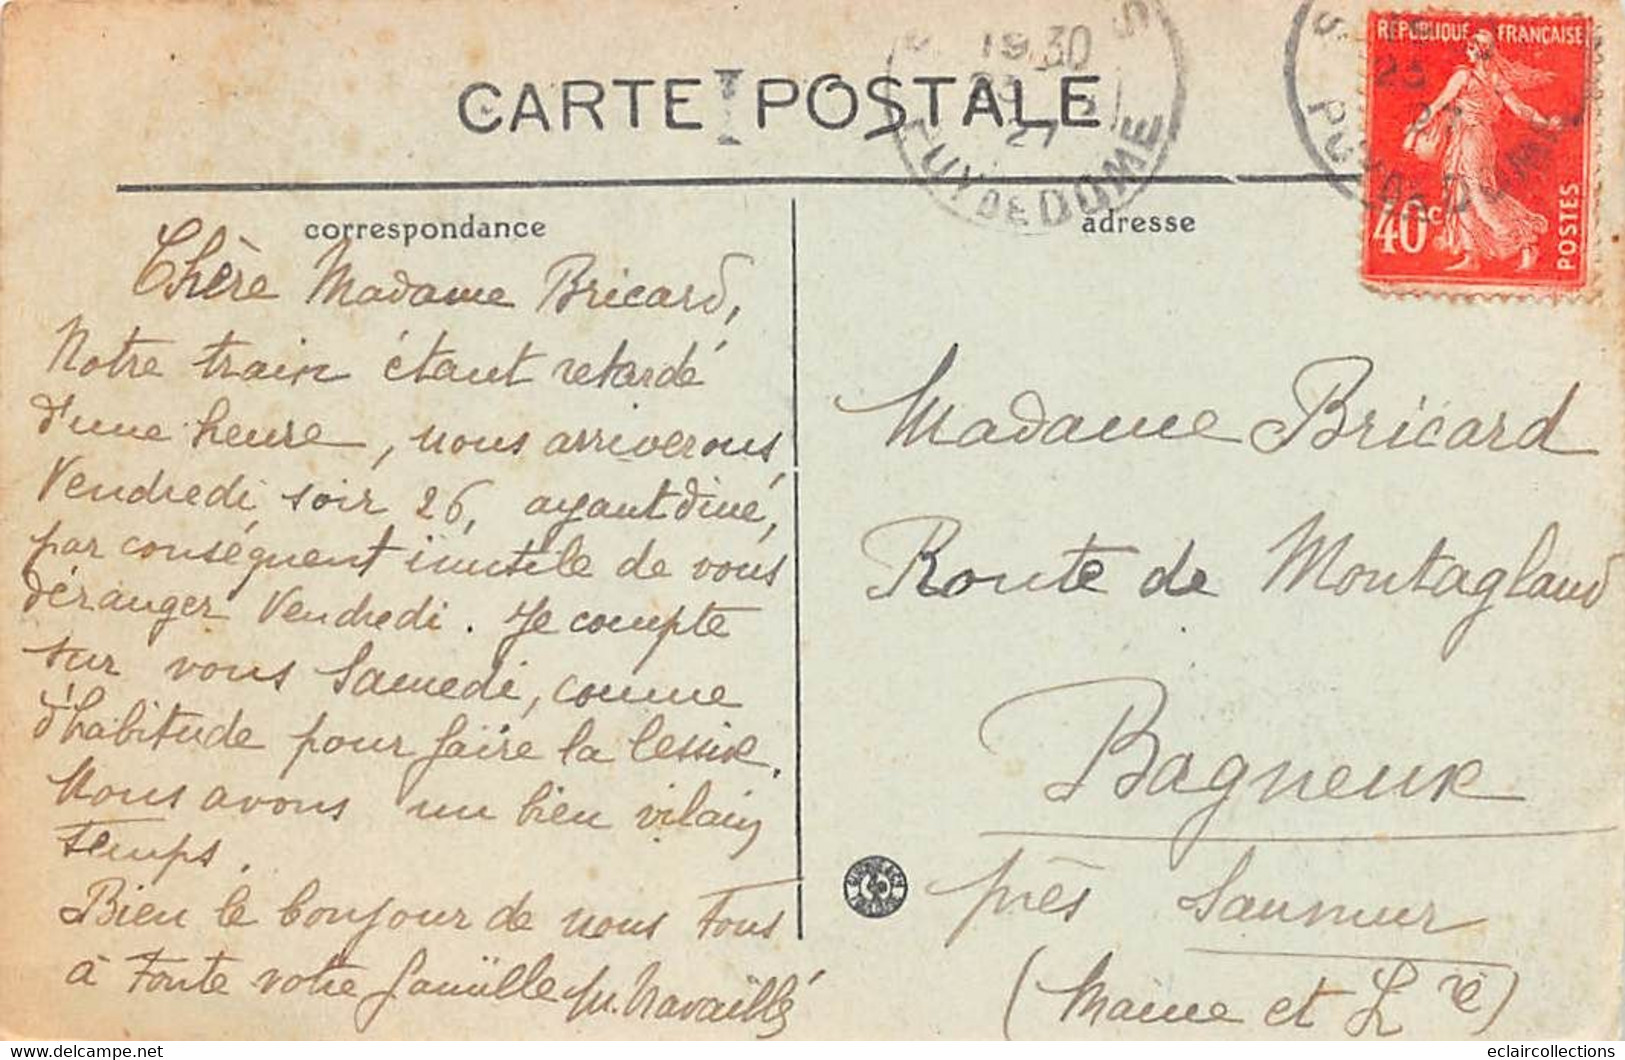 CARTE POSTALE
19 30
27
PUY DE DOME
23
27
PUY DE DOME
REPUBLIQUE FRANÇAISE
40c
POSTES
correspondance
adresse
Chère Madame Bricard,
Notre train étant retardé
d'une heure, nous arriverons
Vendredi soir 26, ayant diné,
par conséquent inutile de vous
déranger Vendredi. Je compte
sur vous Samedi, comme
d'habitude pour faire la lessive.
Nous avons un bien vilain
Temps.
Bien le bonjour de nous Tous
à Toute votre famille
Madame Bricard
Route de Montagland
Bagneux
près Saumur
(Maine et Lre)
eclaircollections
delcampe.net